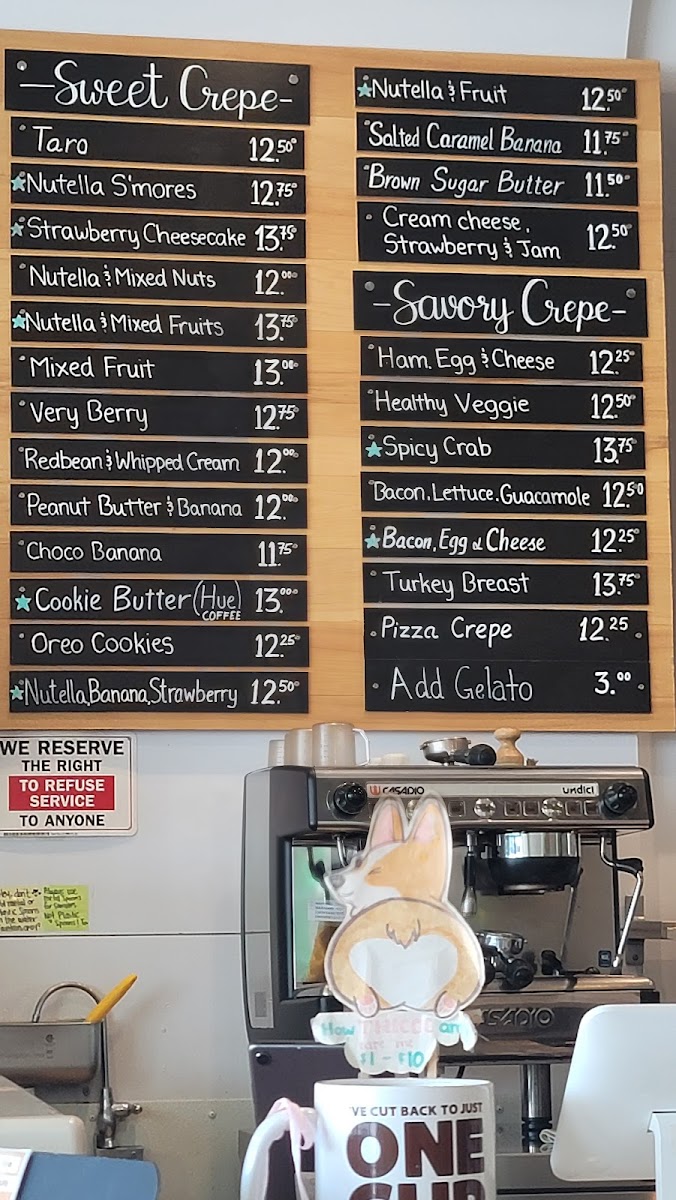 Sweet Crepe
Taro 12.50
Nutella S'mores 12.75
Strawberry Cheesecake 13.75
Nutella & Mixed Nuts 12.00
Nutella & Mixed Fruits 13.75
Mixed Fruit 13.00
Very Berry 12.75
Redbean & Whipped Cream 12.00
Peanut Butter & Banana 12.00
Choco Banana 11.75
Cookie Butter (Hue) 13.00
COFFEE
Oreo Cookies 12.25
Nutella, Banana, Strawberry 12.50
Nutella & Fruit 12.50
Salted Caramel Banana 11.75
Brown Sugar Butter 11.50
Cream cheese,
Strawberry & Jam 12.50
Savory Crepe
Ham. Egg & Cheese 12.25
Healthy Veggie 12.50
Spicy Crab 13.75
Bacon. Lettuce. Guacamole 12.50
Bacon, Egg & Cheese 12.25
Turkey Breast 13.75
Pizza Crepe 12.25
Add Gelato 3.00
WE RESERVE
THE RIGHT
TO REFUSE
SERVICE
TO ANYONE
CASADIO undici
CASADIO
How
$1 - $10
I'VE CUT BACK TO JUST
ONE
CUP